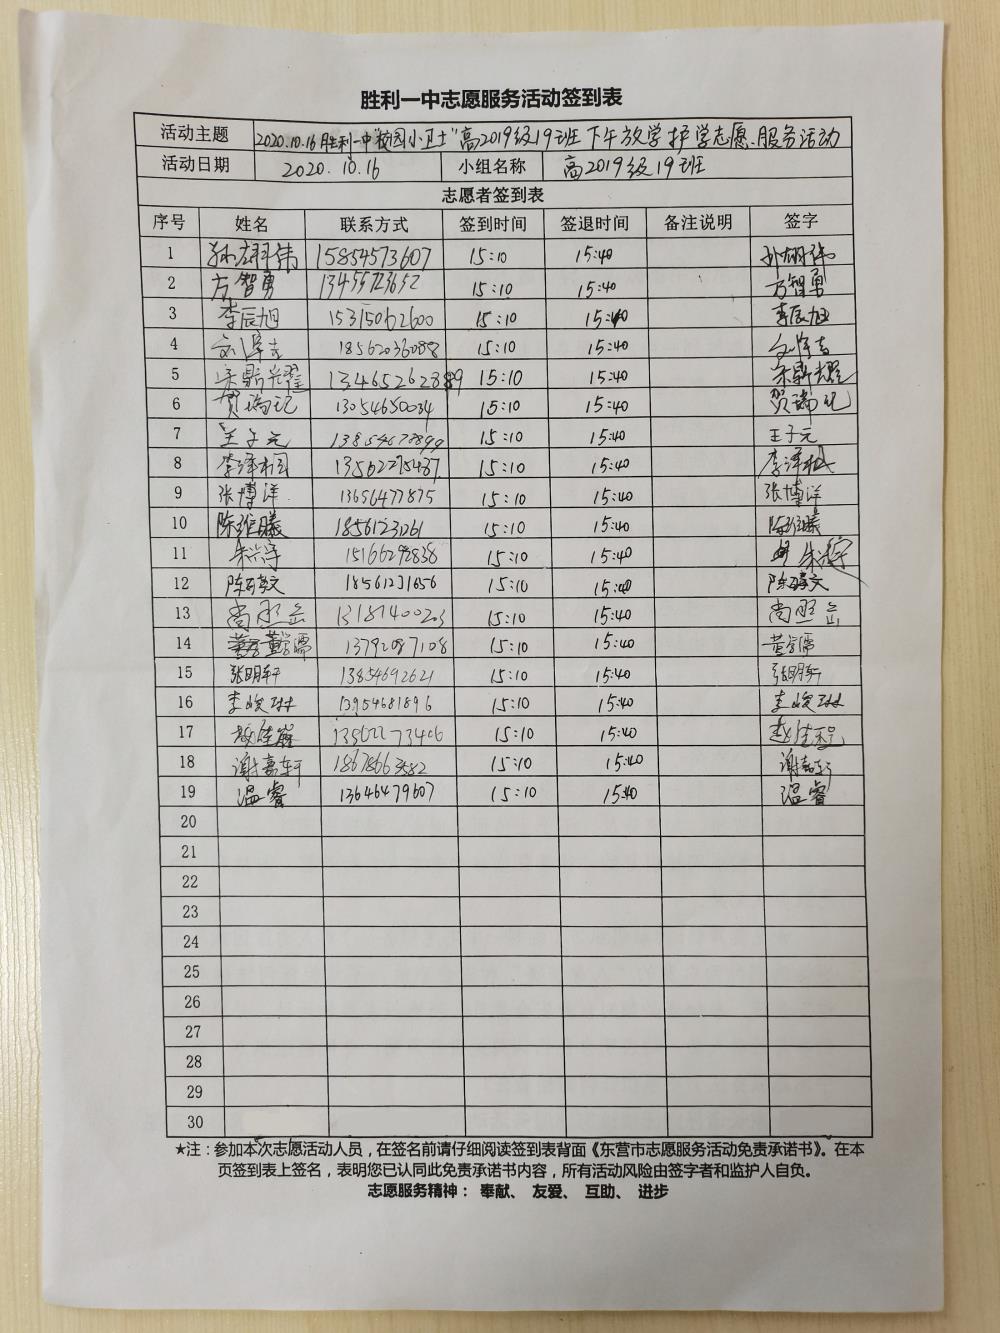 胜利一中志愿服务活动签到表
活动主题 2020.10.16胜利一中"校园小卫士"高2019级19班下午放学护学志愿服务活动
活动日期 2020.10.16 小组名称 高2019级19班
志愿者签到表
序号 姓名 联系方式 签到时间 签退时间 备注说明 签字
1 15854573607 15:10 15:40
2 方智勇 15:10 15:40 方智勇
3 李辰旭 15315062600 15:10 15:40 李辰旭
4 18562036088 15:10 15:40
5 宋鼎耀 15:10 15:40 宋鼎耀
6 贺瑞记 13054650034 15:10 15:40 贺瑞记
7 王子元 15:10 15:40 王子元
8 李泽桐 13562275437 15:10 15:40 李泽桐
9 张博洋 13656477875 15:10 15:40 张博洋
10 1856123261 15:10 15:40
11 15166292838 15:10 15:40
12 18561231656 15:10 15:40
13 13181400223 15:10 15:40
14 董学儒 13792087108 15:10 15:40 董学儒
15 张明轩 13854692621 15:10 15:40 张明轩
16 李峻琳 13954681896 15:10 15:40 李峻琳
17 15:10 15:40
18 谢嘉轩 18678663582 15:10 15:40 谢嘉轩
19 温睿 13646479607 15:10 15:40 温睿
20
21
22
23
24
25
26
27
28
29
30
★注:参加本次志愿活动人员,在签名前请仔细阅读签到表背面《东营市志愿服务活动免责承诺书》。在本
页签到表上签名,表明您已认同此免责承诺书内容,所有活动风险由签字者和监护人自负。
志愿服务精神: 奉献、 友爱、 互助、 进步